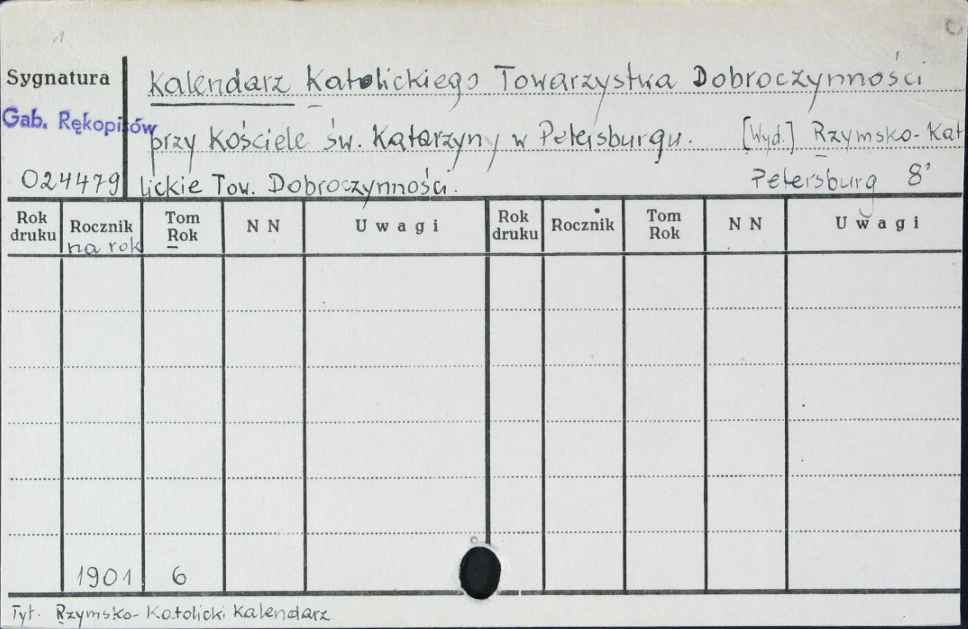 Sygnatura Kalendarz Katolickiego Towarzystwa Dobroczynności
Gab. Rękopisów przy Kościele św. Katarzyny w Petersburgu. [Wyd.] Rzymsko-Kat
024479 lickie Tow. Dobroczynności. Petersburg 8°
Rok druku Rocznik na rok Tom Rok N N Uwagi Rok druku Rocznik Tom Rok N N Uwagi
1901 6
Tyt. Rzymsko-Katolicki Kalendarz